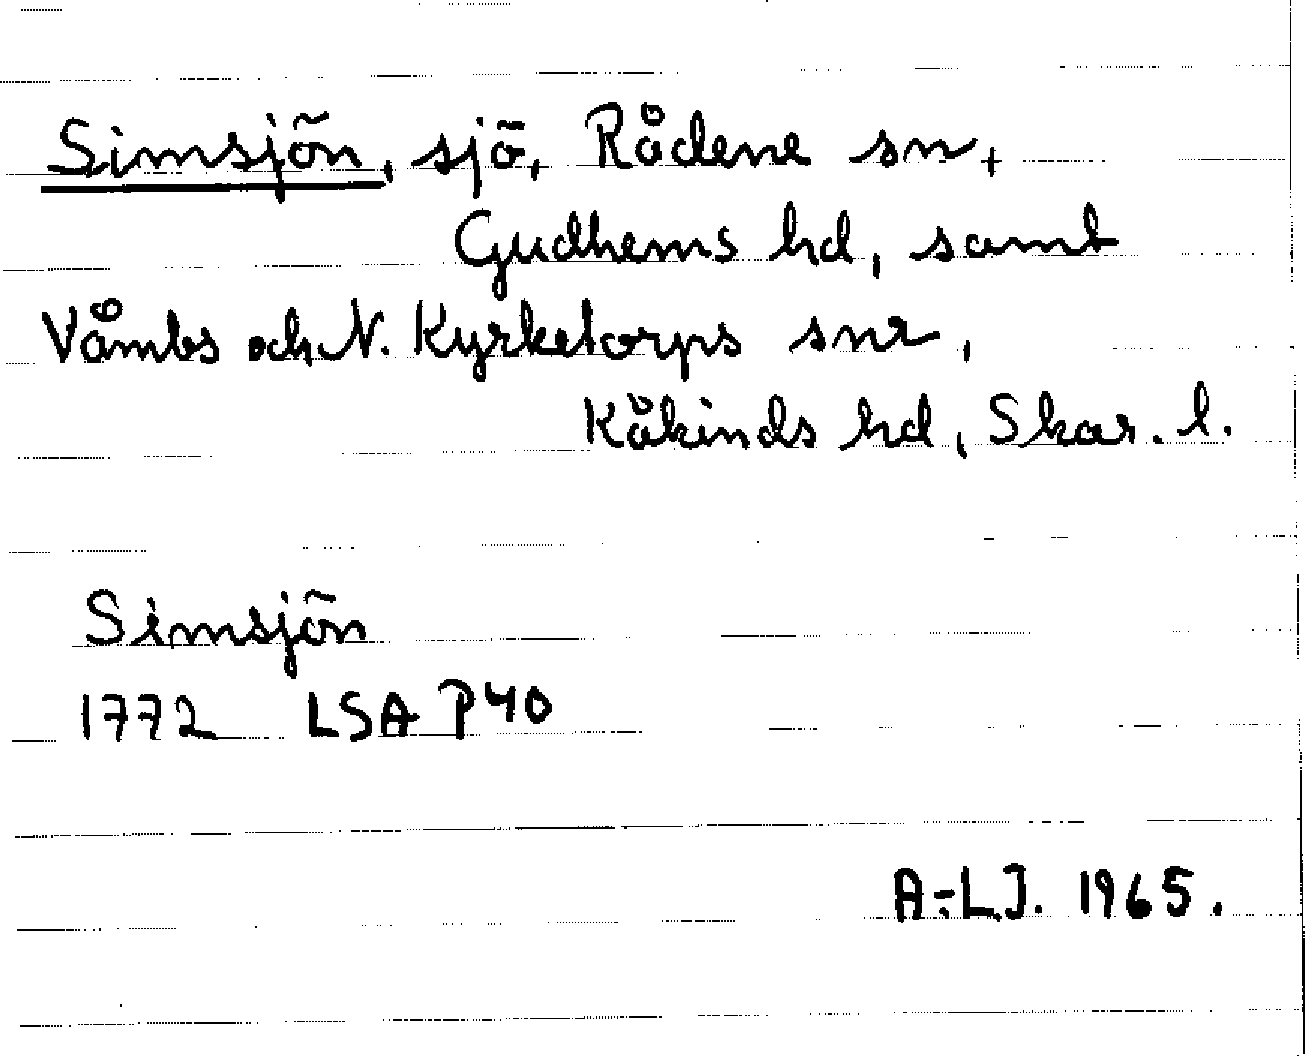 Simsjön, sjö, Rådene sn,
Gudhems hd, samt
Våmbs och N. Kyrketorps snr,
Kåkinds hd, Skar. l.
Simsjön
1772 LSA P40
A-LJ. 1965.